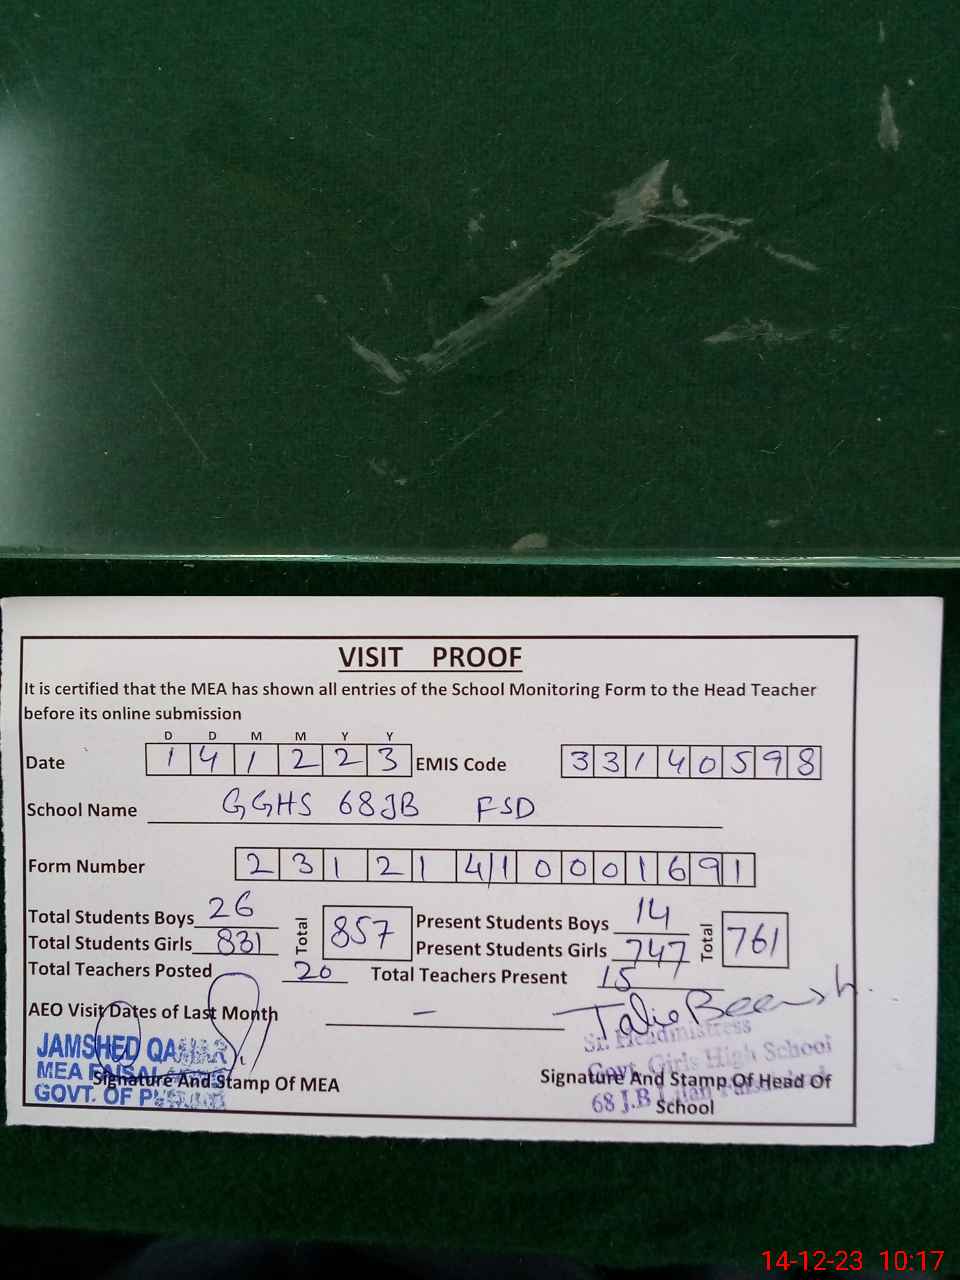 VISIT PROOF
It is certified that the MEA has shown all entries of the School Monitoring Form to the Head Teacher
before its online submission
D D M M Y Y
Date 1 4 1 2 2 3 EMIS Code 3 3 1 4 0 5 9 8
School Name GGHS 68JB FSD
Form Number 2 3 1 2 1 4 1 0 0 0 1 6 9 1
Total Students Boys 26 Total 857 Present Students Boys 14 Total 761
Total Students Girls 831 Present Students Girls 747
Total Teachers Posted 20 Total Teachers Present 15
AEO Visit Dates of Last Month –
JAMSHED
MEA
GOVT. OF
Signature And Stamp Of MEA
Sr. Headmistress
Govt. Girls High School
68 J.B
Signature And Stamp Of Head Of
School
14-12-23 10:17